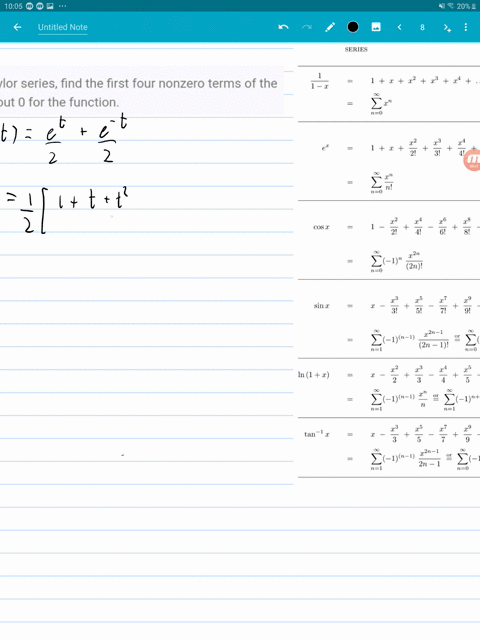 10:05 20%
Untitled Note 8
ylor series, find the first four nonzero terms of the
out 0 for the function.
t) = e^t/2 + e^-t/2
= 1/2 [ 1 + t + t^2
SERIES
1/(1 − x) = 1 + x + x^2 + x^3 + x^4 + ..
= ∑_{n=0}^∞ x^n
e^x = 1 + x + x^2/2! + x^3/3! + x^4/4! +
= ∑_{n=0}^∞ x^n/n!
cos x = 1 − x^2/2! + x^4/4! − x^6/6! + x^8/8! −
= ∑_{n=0}^∞ (−1)^n x^{2n}/(2n)!
sin x = x − x^3/3! + x^5/5! − x^7/7! + x^9/9! −
= ∑_{n=1}^∞ (−1)^{(n−1)} x^{2n−1}/(2n − 1)! or= ∑_{n=0}^∞ (
ln (1 + x) = x − x^2/2 + x^3/3 − x^4/4 + x^5/5 −
= ∑_{n=1}^∞ (−1)^{(n−1)} x^n/n or= ∑_{n=1}^∞ (−1)^{n+
tan^{−1} x = x − x^3/3 + x^5/5 − x^7/7 + x^9/9 −
= ∑_{n=1}^∞ (−1)^{(n−1)} x^{2n−1}/(2n − 1) or= ∑_{n=0}^∞ (−1